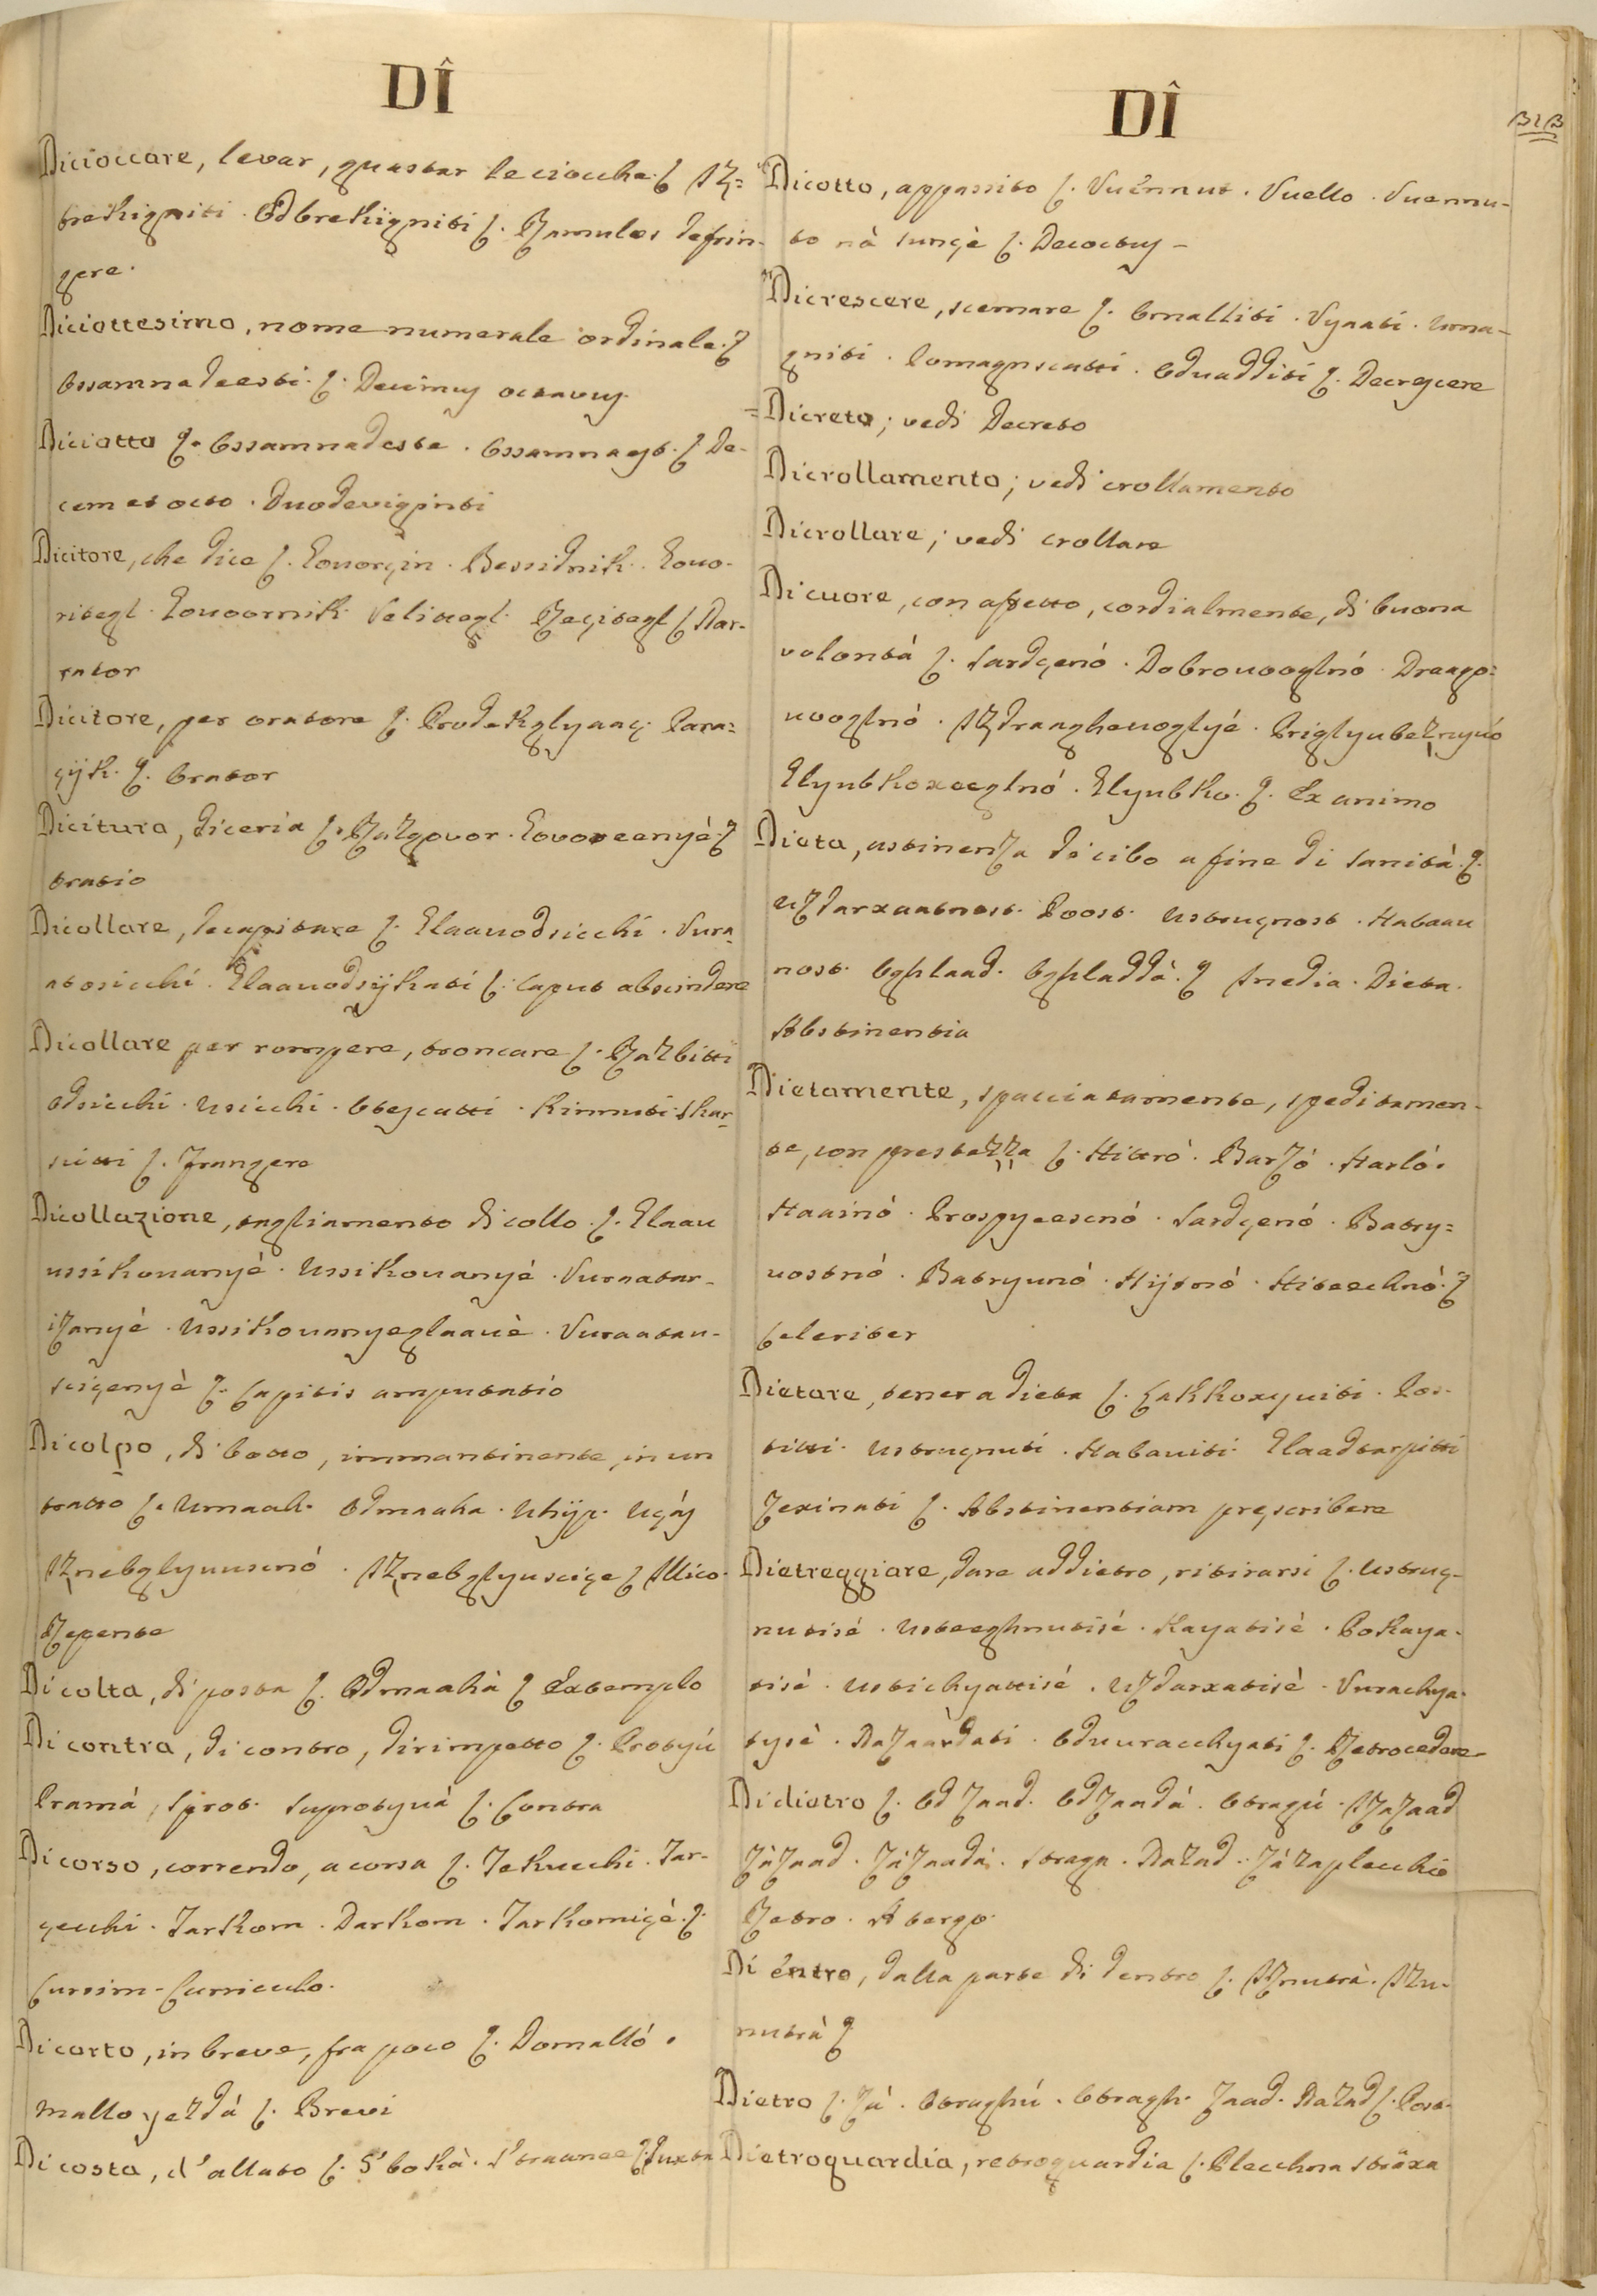 DÎ
Dicioccare, levar, guastar le ciocche. ſ. Iz=
brekigniti. Odbrekigniti ſ. Ramulos defrin-
gere.
Diciottesimo, nome numerale ordinale. ſ
Ossamnadeesti. ſ. Decimus octavus.
Diciotto ſ. Ossamnadeste. Ossamnayst. ſ De-
cem et octo. Duodeviginti
Dicitore, che dice ſ. Govorçin. Bessidnik. Govo-
ritegl. Govoornik. Velittegl. Reçitegl ſ Nar-
rator
Dicitore, per oratore ſ. Prodekglyaaç. Para=
çijk. ſ. Orator
Dicitura, diceria ſ. Razgovor. Govoreenyè. ſ
Oratio
Dicollare, decapitare ſ. Glaauodsicchi. Vura-
atosicchi. Glaauodsijkati ſ. Caput abscindere
Dicollare per rompere, troncare ſ. Razbitti
Odsicchi. Usicchi. Otescatti. Kinnuti. Skar-
scitti ſ. Frangere
Dicollazione, tagliamento di collo. ſ. Glaau
ussikouanyè. Ussikouanyè. Vuraatar-
izanyè. Ussikouanyeglaauè. Vuraatau-
scigenyè ſ. Capitis amputatio
Di colpo, di botto, immantinente, in un
tratto ſ. Umaah. Odmaaha. Uhijp. Uçás
Iznebglyuuscnó. Iznebglyusciçe ſ Illico.
Repente
Di colta, di posta ſ. Odmaahà ſ Extemplo
Di contra, di contro, dirimpetto ſ. Protyú
Pramá, Sprot. Suprotyvá ſ. Contra
Di corso, correndo, a corsa ſ. Tekucchi. Tar-
çecchi. Tarkom. Darkom. Tarkomiçè. ſ.
Cursim - Curriculo.
Di corto, in breve, fra poco ſ. Domalló.
Mallo yezdá ſ. Brevi
Di costa, d'allato ſ. S'bokà. S'traanee ſ. Juxta
DÎ
313
Dicotto, appassito ſ. Vuénnut. Vuello. Vuennu-
to nà sunçè ſ. Decoctus -
Dicrescere, scemare ſ. Omallitti. Vyaati. Uma-
gniti. Pomagnscatti. Oduadditi ſ. Decrescere
Dicreto; vedi Decreto
Dicrollamento; vedi crollamento
Dicrollare; vedi crollare
Di cuore, con affetto, cordialmente, di buona
volontá ſ. Sardçenó. Dobrouoogłnó. Draago=
uooglnó. Izdraagheuoglyé. Priglyubeznyuó
Glyubkoxeeglnó. Glyubko. ſ. Ex animo
Dieta, astinenza di cibo a fine di sanità. ſ.
Uzdarxaatnost. Poost. Ustrugnost. Habaau
nost. Oghlaad. Oghladdá. ſ Inedia. Dieta.
Abstinentia
Dietamente, spacciatamente, speditamen-
te, con prestezza ſ. Hittrò. Barzó. Harló.
Haainó. Prospyeescnó. Sardçenó. Batry=
uostnó. Batryunó. Hijtnó. Hiteechnó. ſ
Celeriter
Dietare, tener a dieta ſ. Çakkoxyuiti. Pos-
titti. Ustrugnuti. Habauiti. Glaadtarpitti
Zexinati ſ. Abstinentiam prescribere
Dietreggiare, dare addietro, ritirarsi ſ. Ustrug-
nutisé. Usteeghnutisé. Kayatisé. Pokaya-
tisè. Ustichyattisé. Uzdarxatisè. Vurachya-
tysè. Nazaàrdati. Oduuracchyati ſ. Retrocedere-
Di dietro ſ. Od zaad. Odzaadá. Otragú. Izazaad
Zàzaad. Zázaadá. Straga. Nazad. Zázaplecchió
Retro. A tergo.
Di éntro, dalla parte di dentro ſ. Iznutrà. Izu-
nutrà ſ
Dietro ſ. Zá. Otraghú. Otragh. Zaad. Nazad ſ. Post.
Dietroguardia, retroguardia ſ. Plecchna straxa